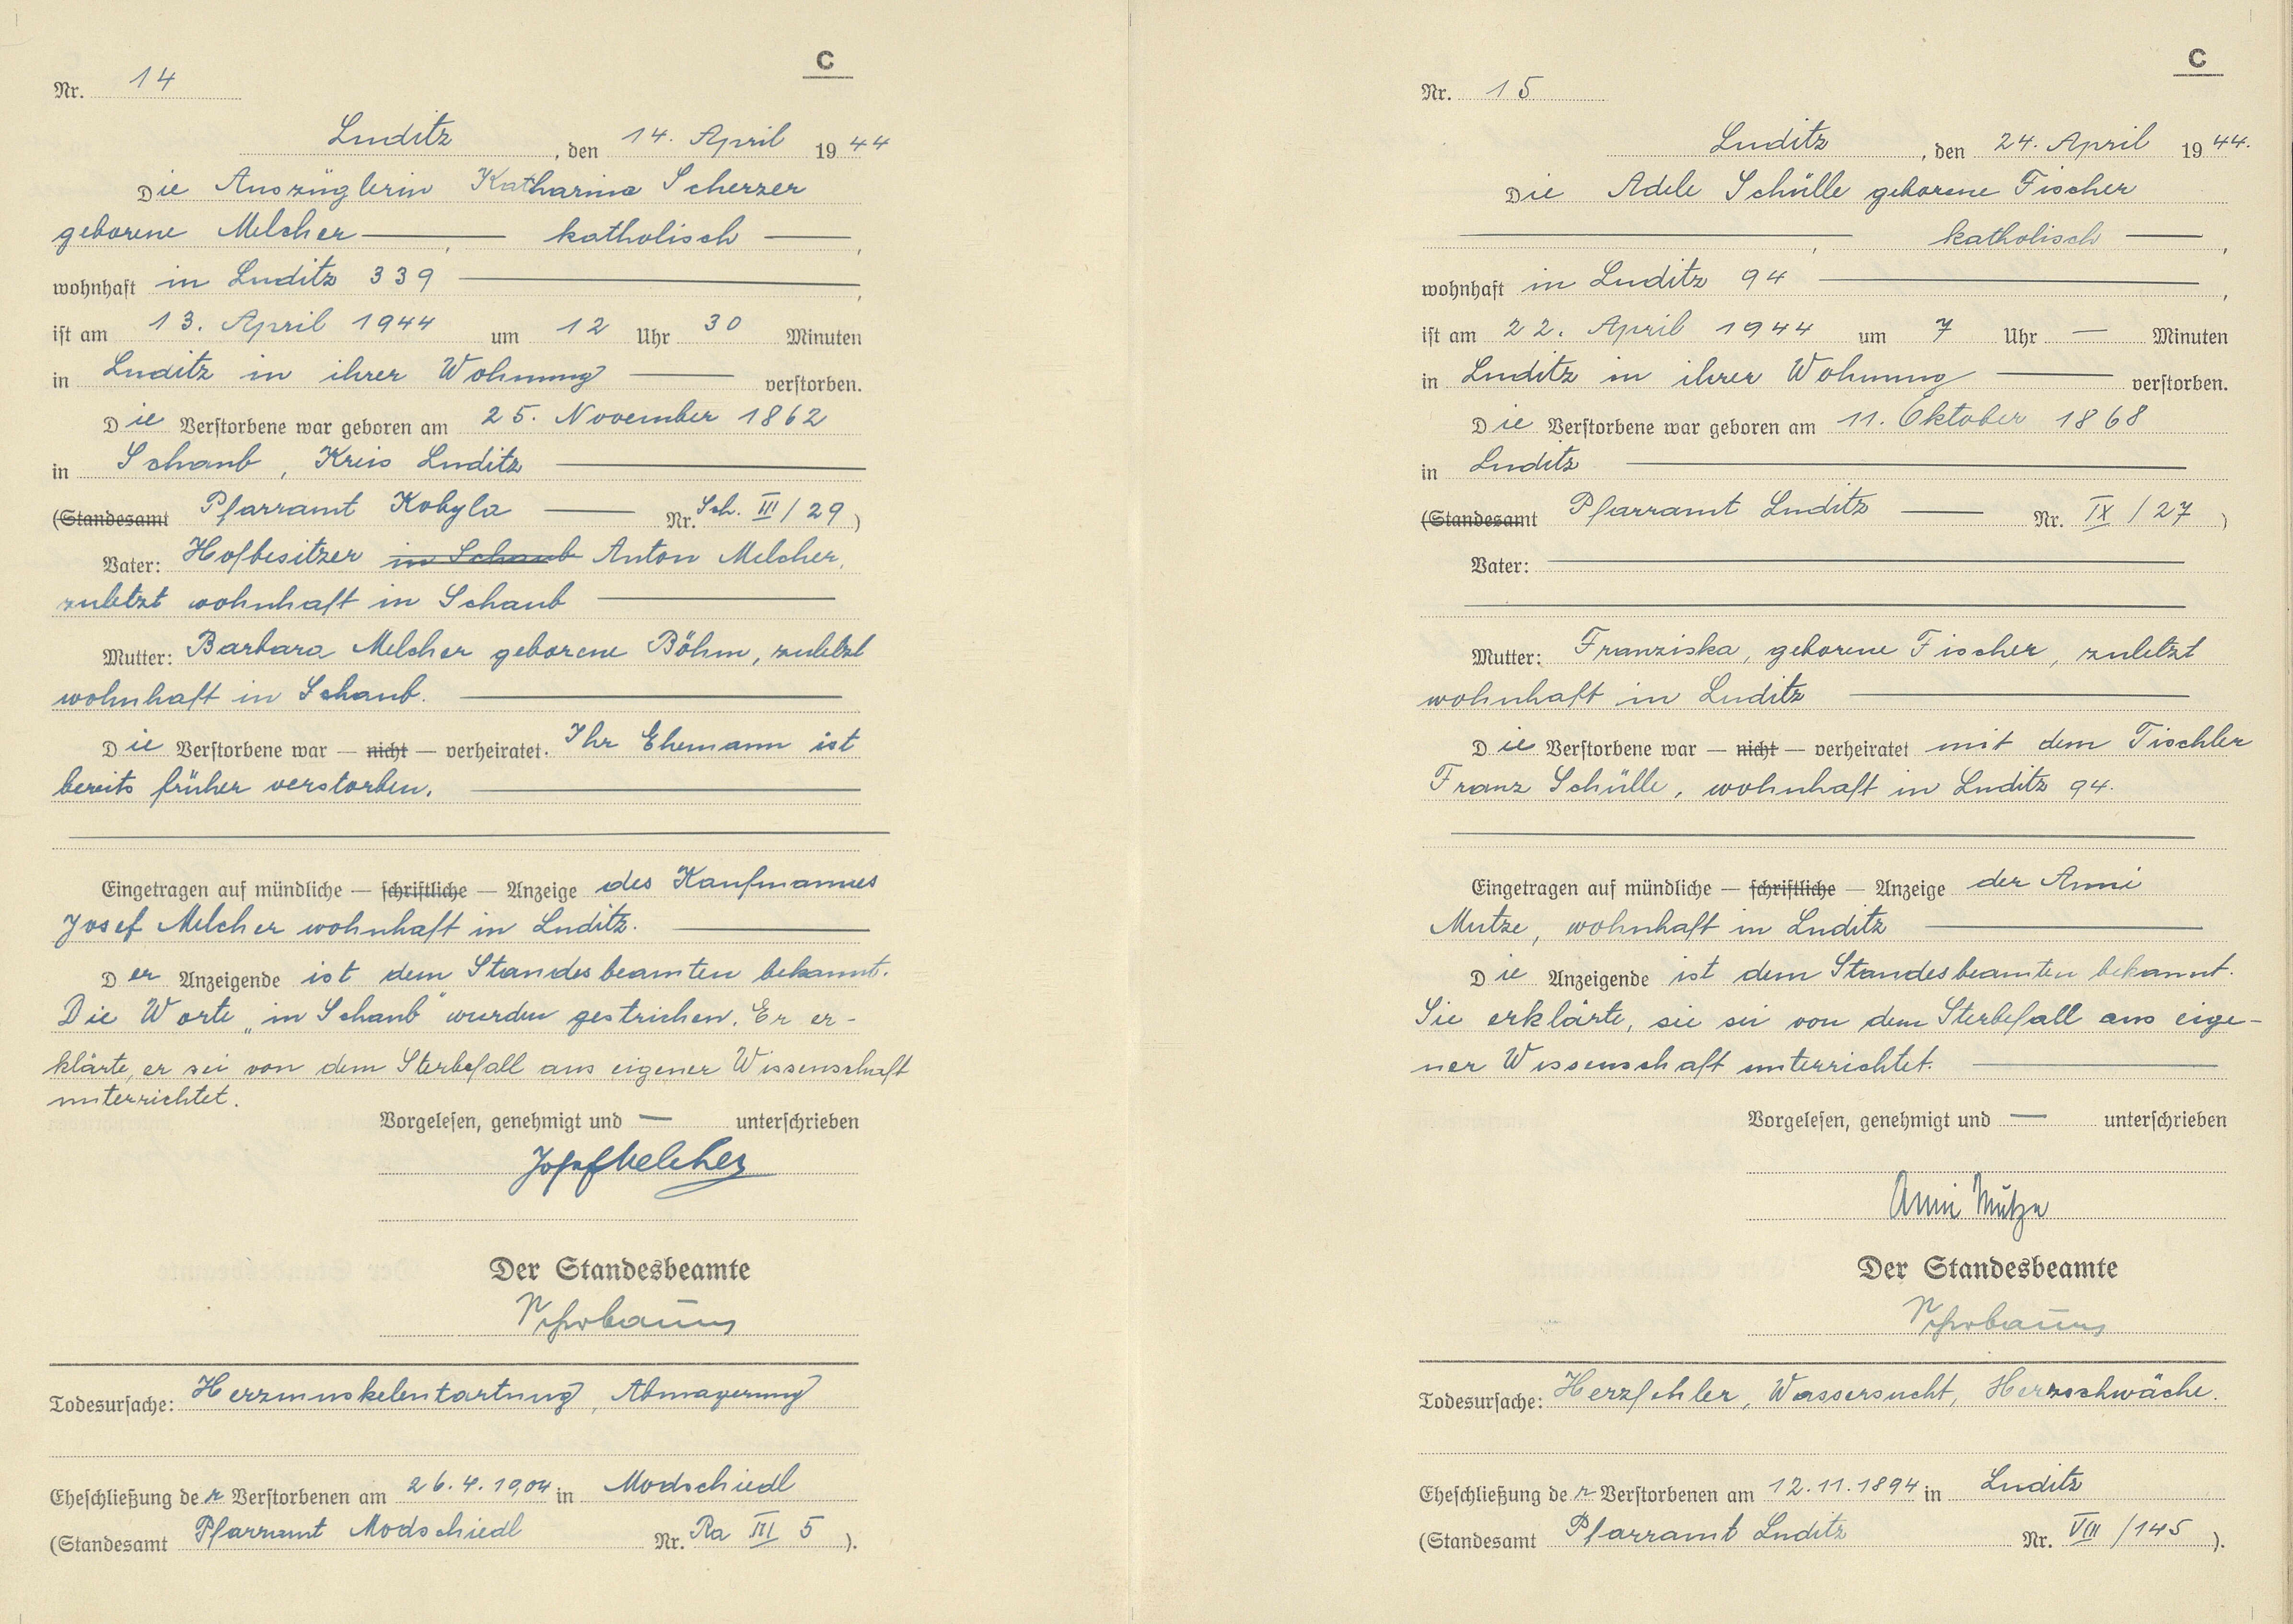 C
Nr. 14
Luditz, den 14. April 1944
Die Auszüglerin Katharina Scherzer
geborene Melcher —, katholisch —,
wohnhaft in Luditz 339 —,
ist am 13. April 1944 um 12 Uhr 30 Minuten
in Luditz in ihrer Wohnung — verstorben.
Die Verstorbene war geboren am 25. November 1862
in Schaub, Kreis Luditz —
(Standesamt Pfarramt Kobyla — Nr. Sch. III/29)
Vater: Hofbesitzer in Schaub Anton Melcher,
zuletzt wohnhaft in Schaub —
Mutter: Barbara Melcher geborene Böhm, zuletzt
wohnhaft in Schaub. —
Die Verstorbene war — nicht — verheiratet. Ihr Ehemann ist
bereits früher verstorben. —
Eingetragen auf mündliche — schriftliche — Anzeige des Kaufmannes
Josef Melcher wohnhaft in Luditz. —
Der Anzeigende ist dem Standesbeamten bekannt.
Die Worte „in Schaub" wurden gestrichen. Er er-
klärte, er sei von dem Sterbefall aus eigener Wissenschaft
unterrichtet.
Vorgelesen, genehmigt und — unterschrieben
Josef Melcher
Der Standesbeamte
Todesursache: Herzmuskelentartung, Abmagerung
Eheschließung der Verstorbenen am 26.4.1904 in Modschiedl
(Standesamt Pfarramt Modschiedl Nr. Ra III 5).
C
Nr. 15
Luditz, den 24. April 1944.
Die Adele Schülle geborene Fischer
—, katholisch —,
wohnhaft in Luditz 94 —,
ist am 22. April 1944 um 7 Uhr — Minuten
in Luditz in ihrer Wohnung — verstorben.
Die Verstorbene war geboren am 11. Oktober 1868
in Luditz —
(Standesamt Pfarramt Luditz — Nr. IX/27)
Vater: —
Mutter: Franziska, geborene Fischer, zuletzt
wohnhaft in Luditz —
Die Verstorbene war — nicht — verheiratet mit dem Tischler
Franz Schülle, wohnhaft in Luditz 94.
Eingetragen auf mündliche — schriftliche — Anzeige der Anni
Mutze, wohnhaft in Luditz —
Die Anzeigende ist dem Standesbeamten bekannt.
Sie erklärte, sie sei von dem Sterbefall aus eige-
ner Wissenschaft unterrichtet. —
Vorgelesen, genehmigt und — unterschrieben
Anni Mutze
Der Standesbeamte
Todesursache: Herzfehler, Wassersucht, Herzschwäche.
Eheschließung der Verstorbenen am 12.11.1894 in Luditz
(Standesamt Pfarramt Luditz Nr. VIII/145).